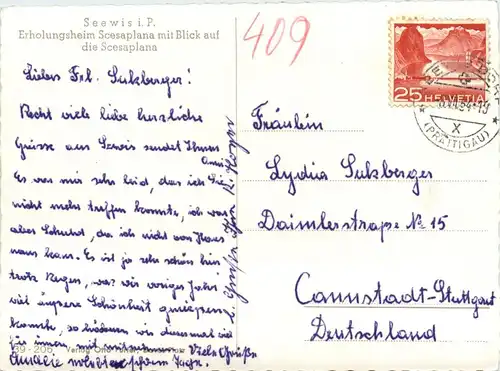 Seewis i. P.
Erholungsheim Scesaplana mit Blick auf
die Scesaplana
409
25 HELVETIA
(PRÄTTIGAU)
X
Liebes Frl. Sulzberger!
Recht viele liebe herzliche
Grüsse aus Seewis sendet Ihnen
Es war mir sehr leid, dass ich Sie
nicht mehr treffen konnte, ich war
aber Schuld, da ich nicht von Ihnen
kam. Es ist ja sehr schön hier
trotz Regen, war wir voriges Jahr
viel äussere Schönheit geniessen
konnte, so diesmal
für innen, mit Viele Grüsse
Amalie
Fräulein
Lydia Sulzberger
Daimlerstrasse No 15
Cannstadt-Stuttgart
Deutschland